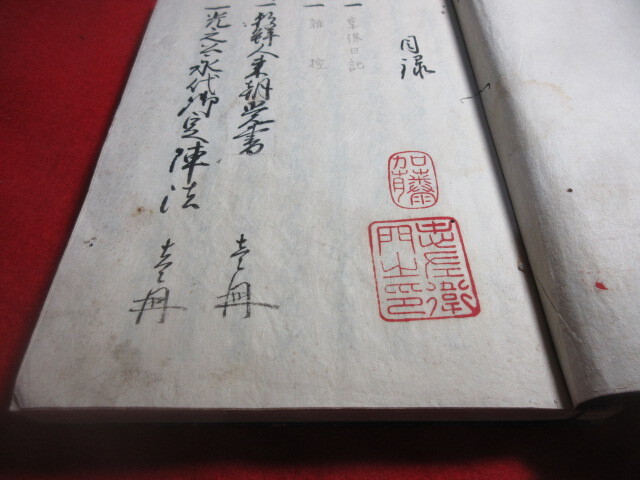 目録
一 享保日記
一 雑控
一 朝鮮人来朝覚書 壹冊
一 光之公永代御定陣法 壹冊
加藤
忠左衛門之印